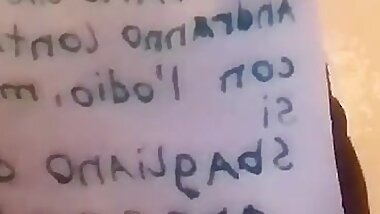 AndrAnno Lont
con l'odio, m
si
SbAgliAno